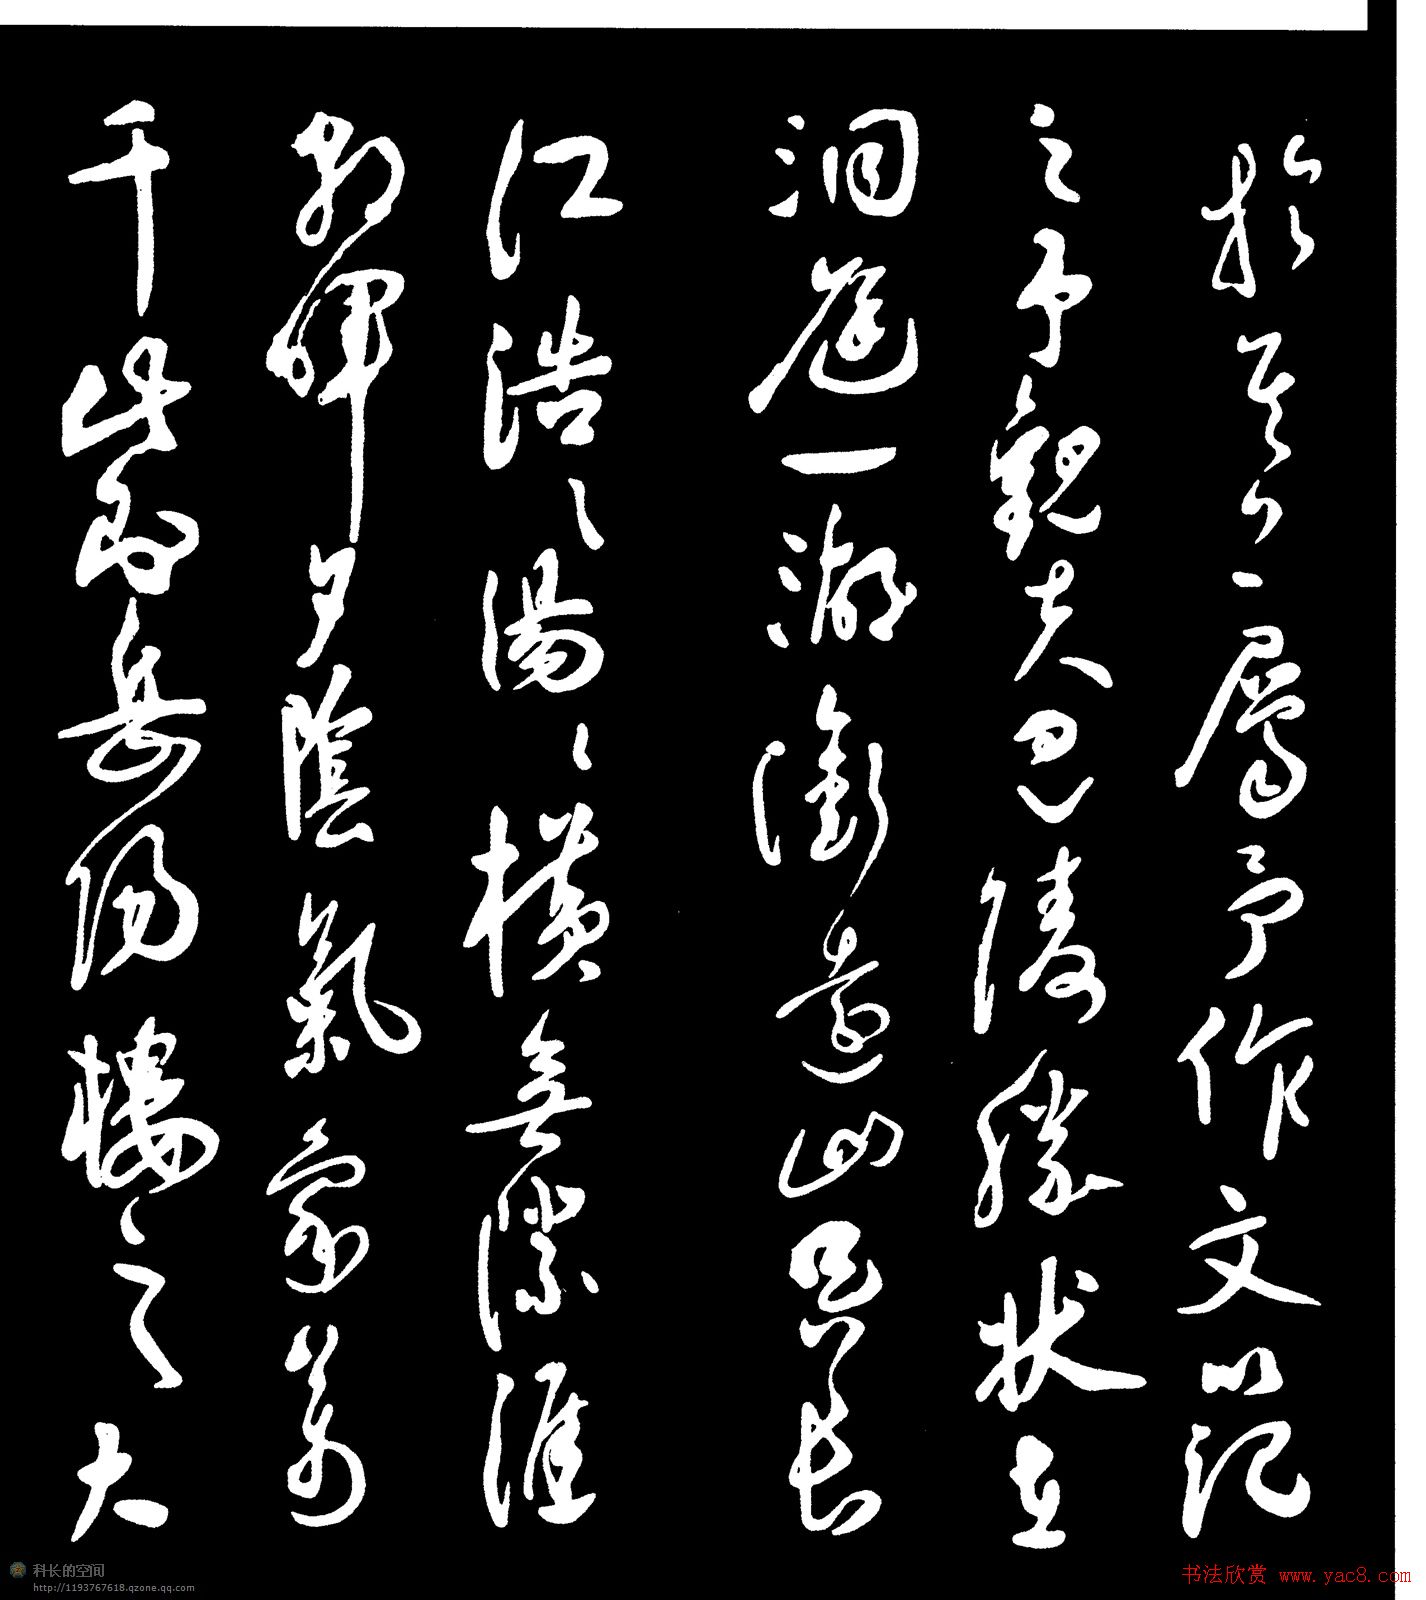 於其上屬予作文以記
之予觀夫巴陵勝状在
洞庭一湖銜遠山吞長
江浩〻湯〻橫無際涯
朝暉夕陰氣象萬
千此則岳陽樓之大
科长的空间
http://1193767618.qzone.qq.com
书法欣赏 www.yac8.com